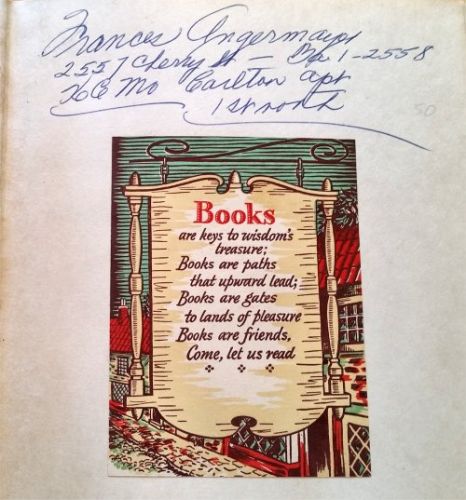 Frances Ingermayr
2557 Cherry St — Ba 1-2558
K C Mo Carlton apt
1st north
50
Books
are keys to wisdom's
treasure;
Books are paths
that upward lead;
Books are gates
to lands of pleasure
Books are friends,
Come, let us read